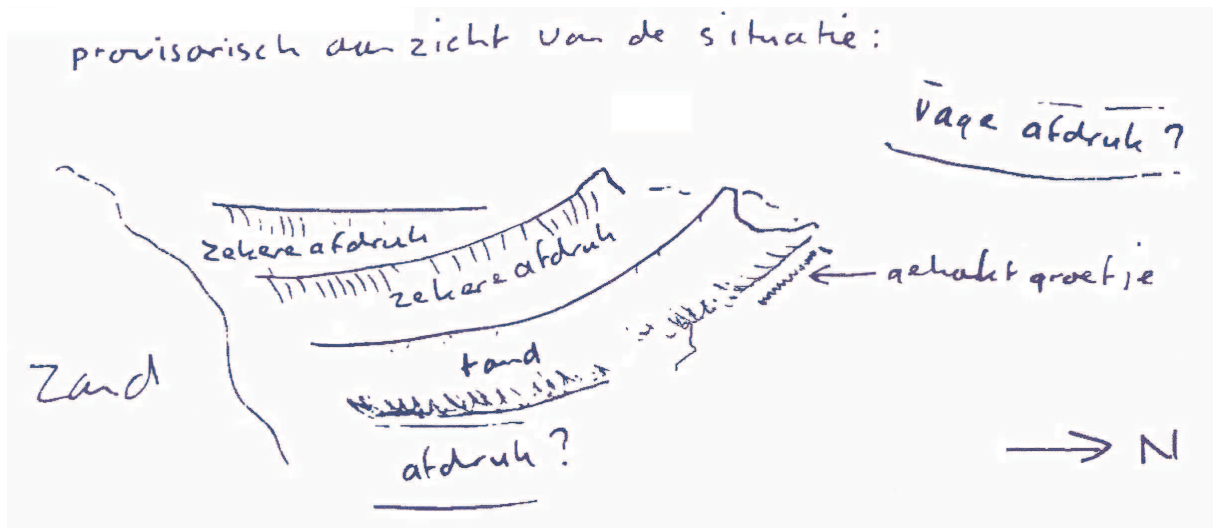 provisorisch aanzicht van de situatie:
vage afdruk?
zekere afdruk
zekere afdruk
gehakt groefje
tand
Zand
afdruk?
N